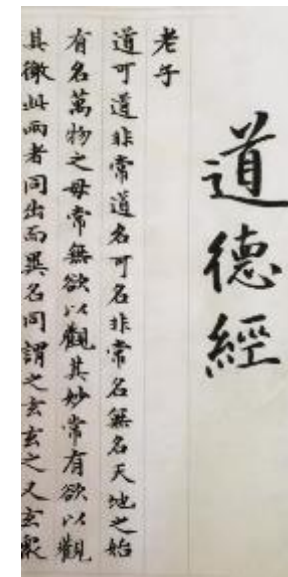 道德經
老子
道可道非常道名可名非常名無名天地之始
有名萬物之母常無欲以觀其妙常有欲以觀
其徼此兩者同出而異名同謂之玄玄之又玄衆